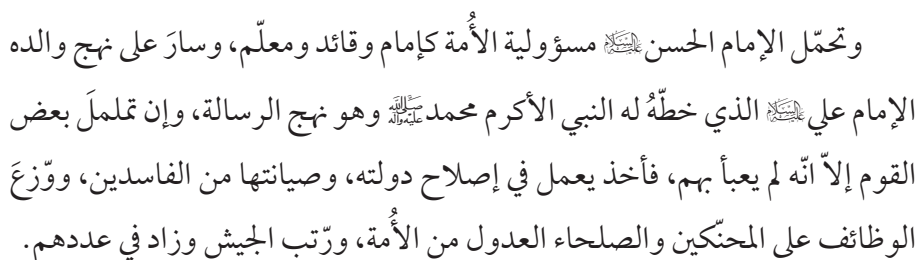 وتحمّل الإمام الحسن عليه السلام مسؤولية الأُمة كإمام وقائد ومعلّم، وسارَ على نهج والده
الإمام علي عليه السلام الذي خطّهُ له النبي الأكرم محمد صلى الله عليه وآله وهو نهج الرسالة، وإن تململَ بعض
القوم إلاّ انّه لم يعبأ بهم، فأخذ يعمل في إصلاح دولته، وصيانتها من الفاسدين، ووّزعَ
الوظائف على المحنّكين والصلحاء العدول من الأُمة، ورّتب الجيش وزاد في عددهم.